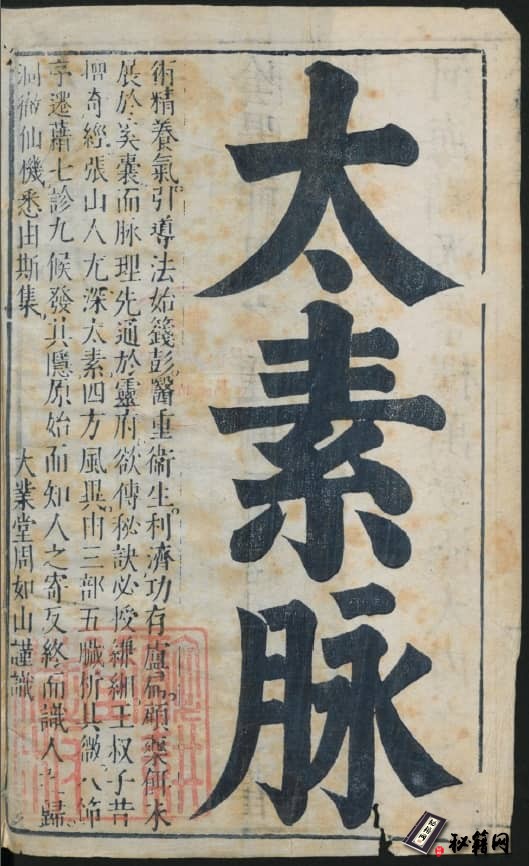 太素脉
術精養氣引導法始籛彭醫重衛生利濟功有盧扁頋藥餌未
展於奚囊而脉理先通於靈府欲傳秘訣必授緗王叔子昔
摺奇經張山人尤深太素四方風異由三部五臟析其微八節
亭遷藉七診九候發其隱原始而知人之寄反終而識人之歸
洞徹仙機悉由斯集
大業堂周如山謹識
秘籍网